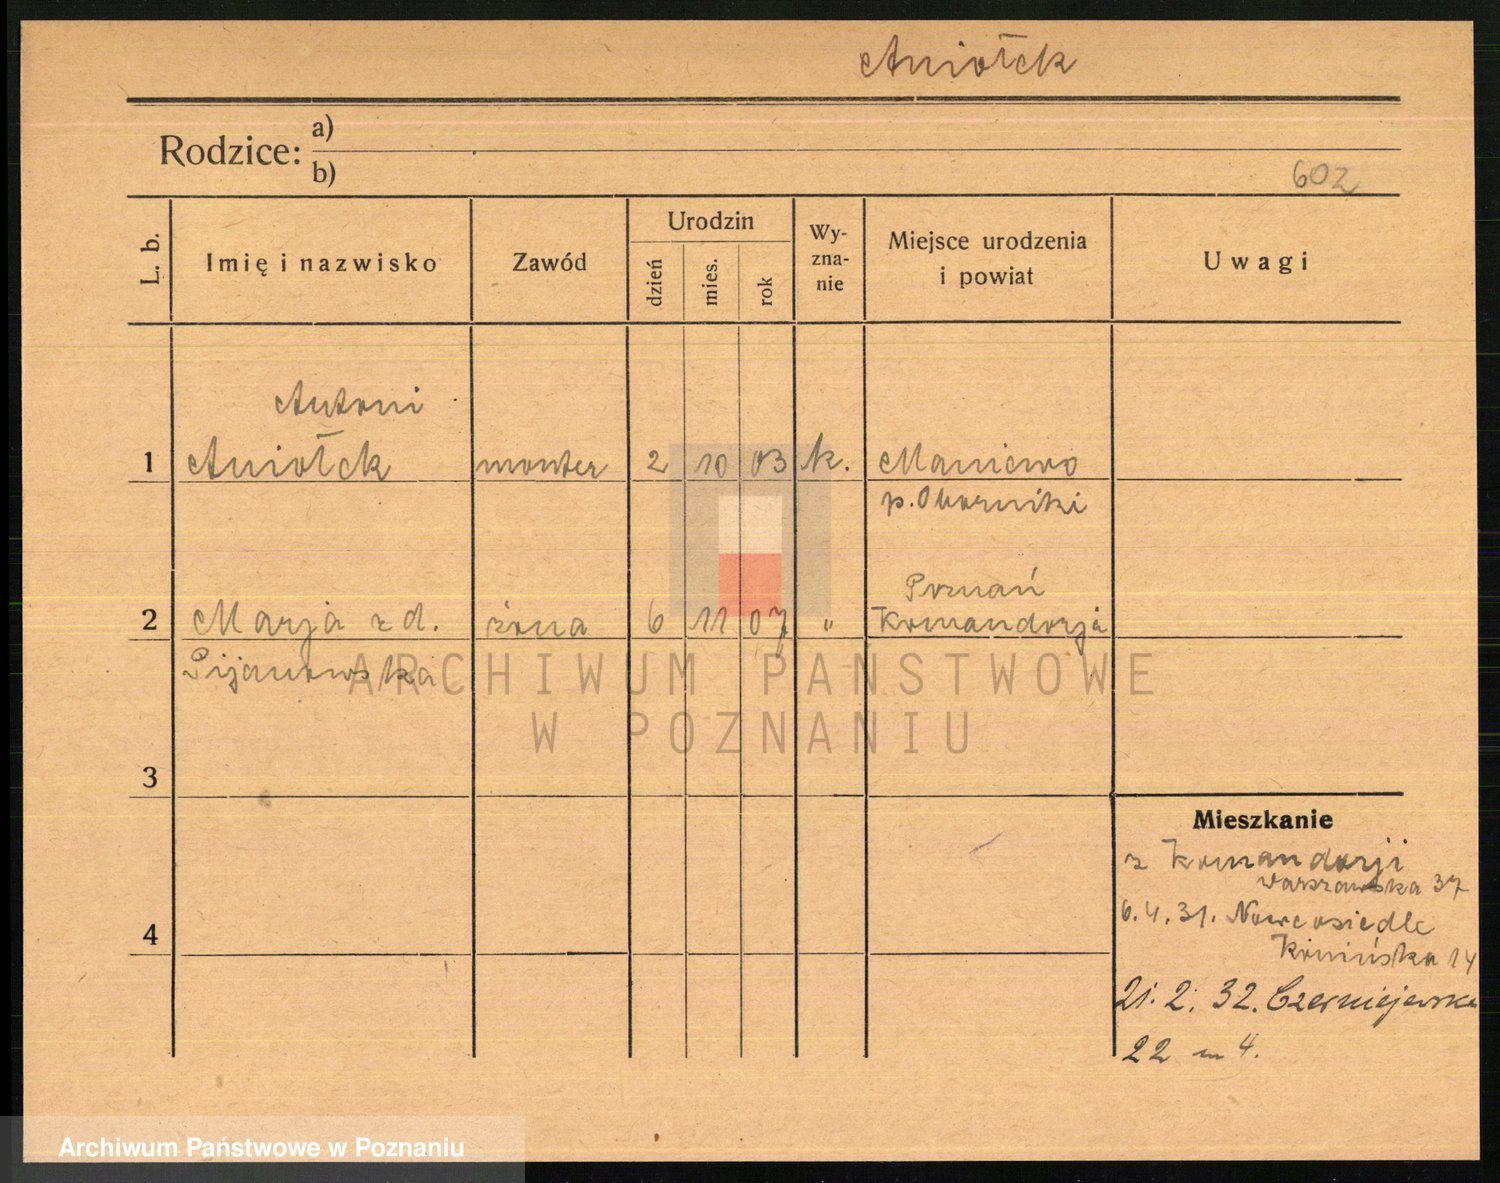 Aniołek
Rodzice: a)
b)
602
L. b.
Imię i nazwisko
Zawód
Urodzin
dzień
mies.
rok
Wy-
zna-
nie
Miejsce urodzenia
i powiat
Uwagi
Antoni
1 Aniołek monter 2 10 03 k. Maniewo
p. Oborniki
Poznań
2 Marja z d. żona 6 11 07 " Komandorja
Pijanowska
3
4
Mieszkanie
z Komandorji
Warszawska 37
6.4.31. Nowe osiedle
Konińska 14
21. 2. 32. Czerniejewska
22 m 4.
ARCHIWUM PAŃSTWOWE
W POZNANIU
Archiwum Państwowe w Poznaniu